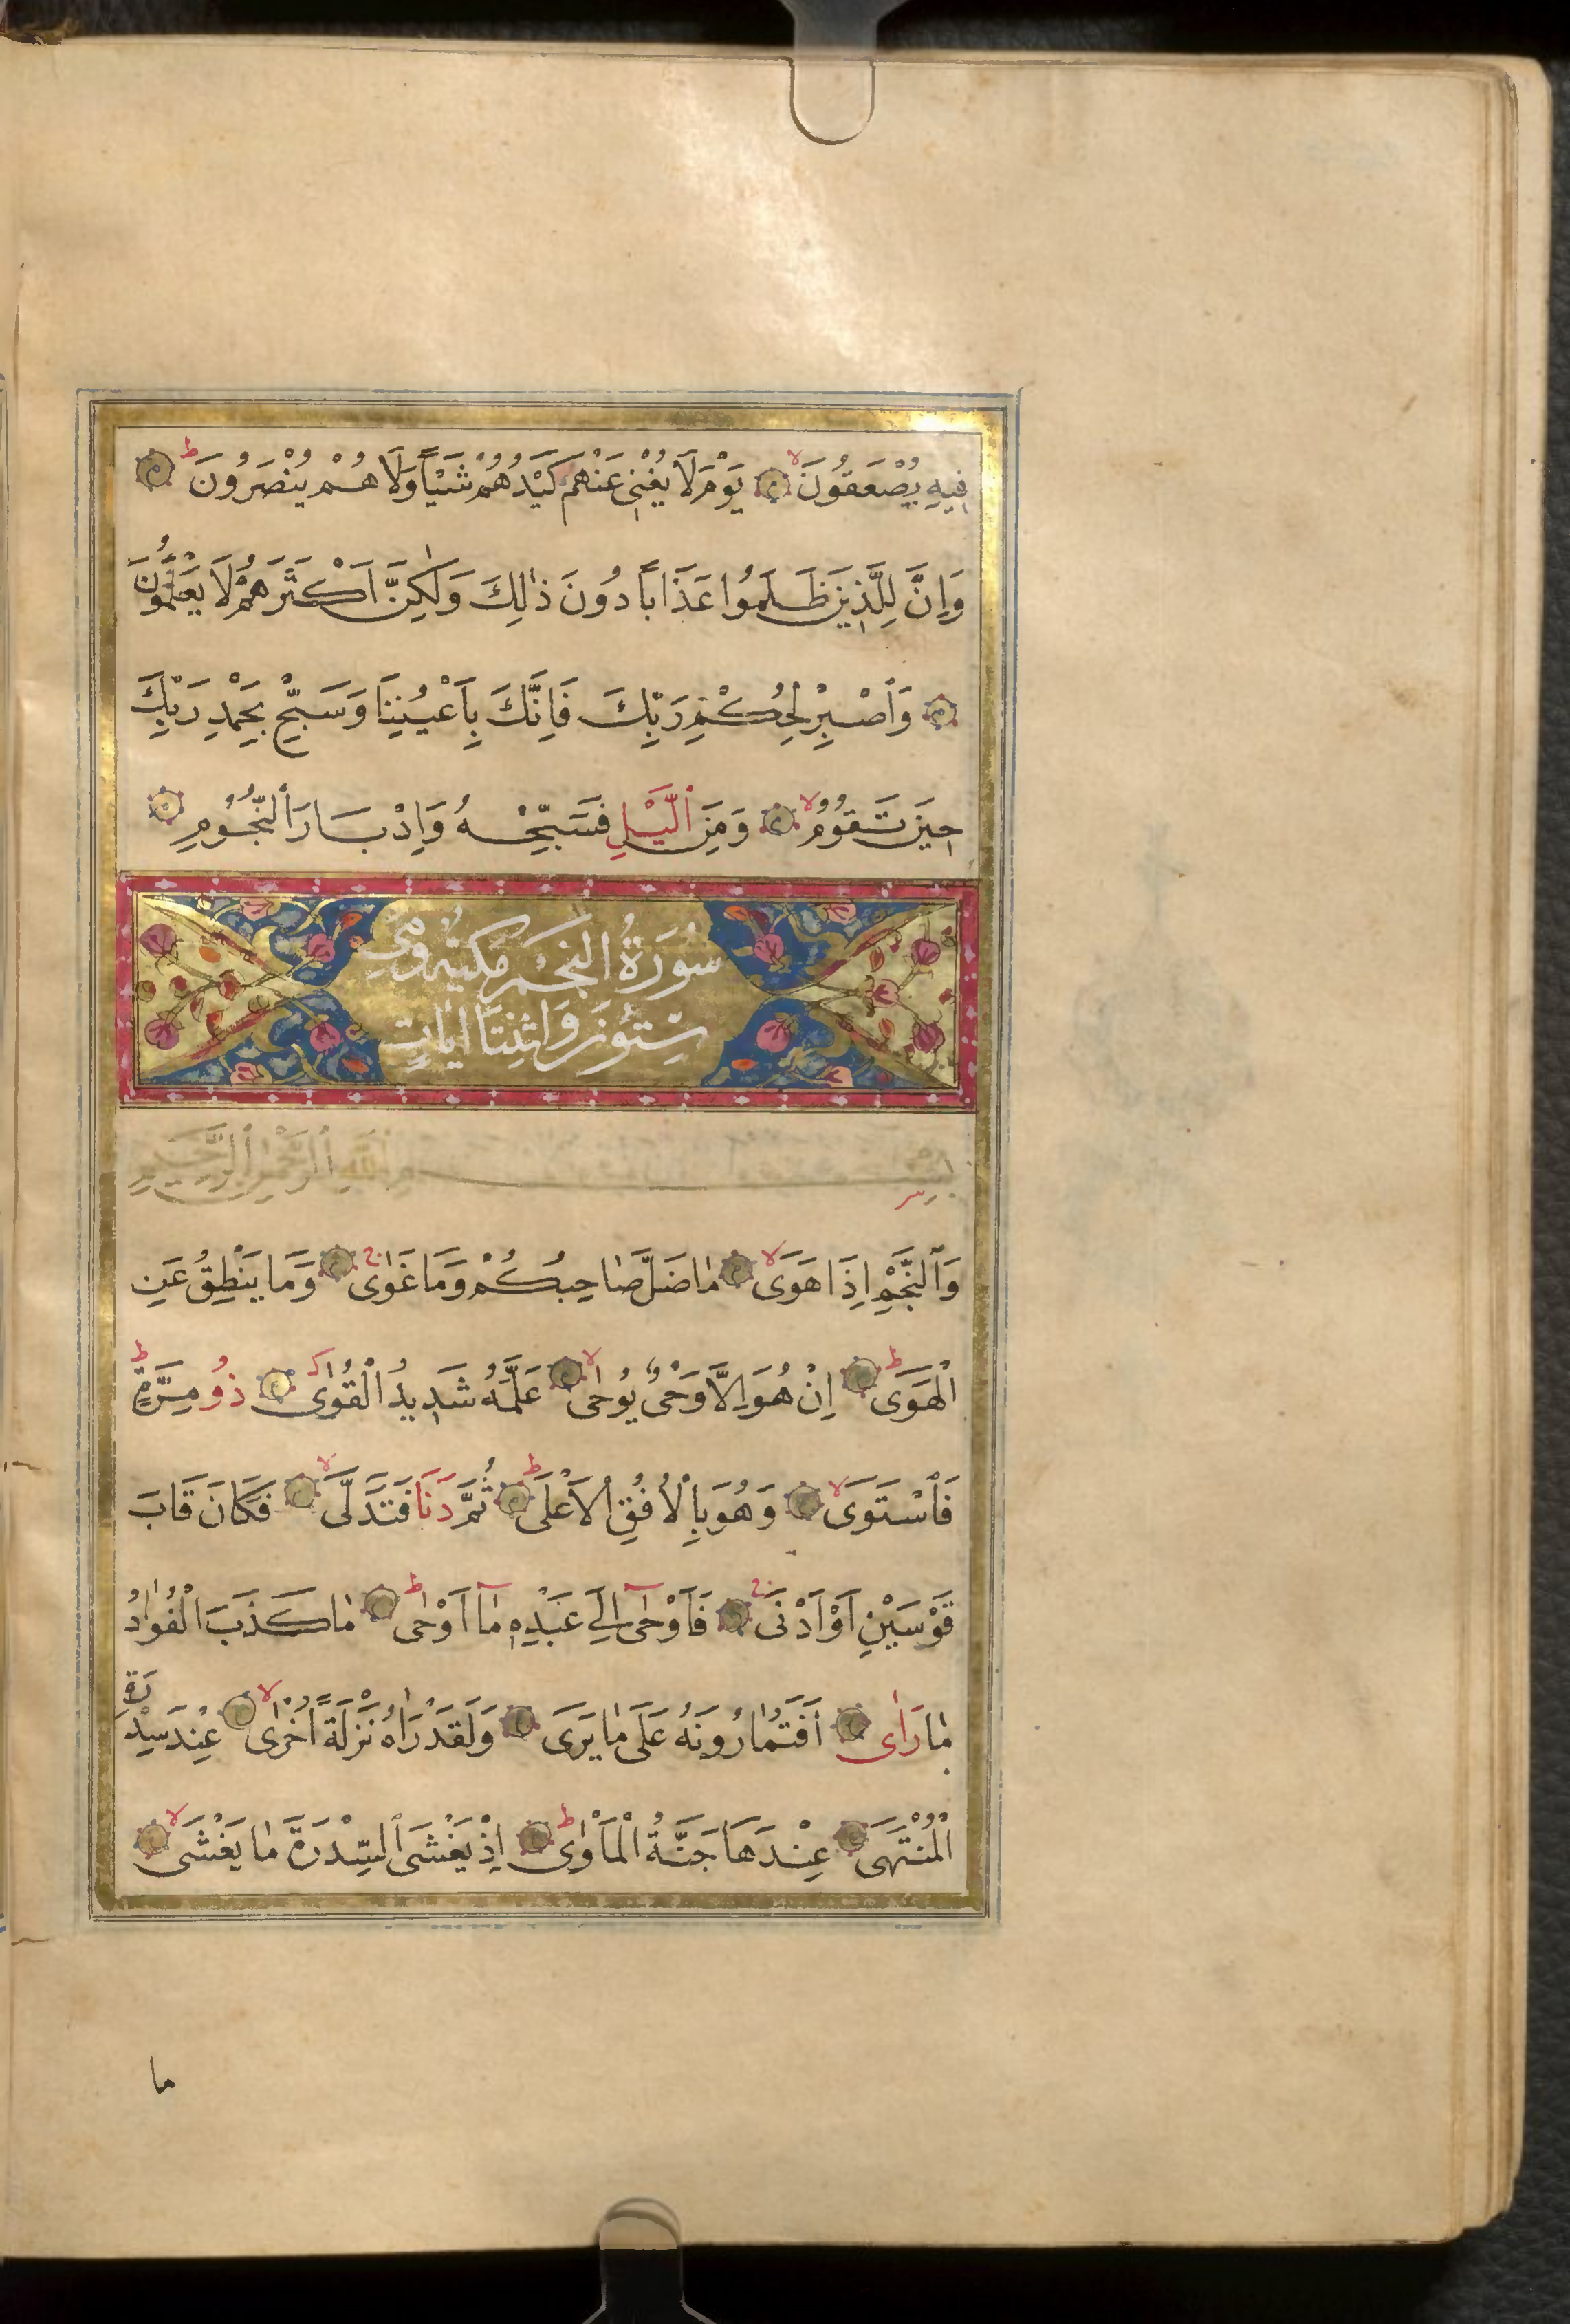 فِيهِ يُصْعَقُونَ ۙ يَوْمَ لَا يُغْنِي عَنْهُمْ كَيْدُهُمْ شَيْـًٔا وَلَا هُمْ يُنْصَرُونَ ۗ ط
وَاِنَّ لِلَّذِينَ ظَلَمُوا عَذَاباً دُونَ ذٰلِكَ وَلٰكِنَّ اَكْثَرَهُمْ لَا يَعْلَمُونَ
وَٱصْبِرْ لِحُكْمِ رَبِّكَ فَاِنَّكَ بِاَعْيُنِنَا وَسَبِّحْ بِحَمْدِ رَبِّكَ
حِينَ تَقُومُ لا وَمِنَ ٱلَّيْلِ فَسَبِّحْهُ وَاِدْبَارَ ٱلنُّجُومِ
سُورَةُ النَّجْمِ مَكِّيَّةٌ وَهِيَ
سِتُّونَ وَاثْنَتَا اٰيَاتٍ
بِسْمِ ٱللّٰهِ ٱلرَّحْمٰنِ ٱلرَّحِيمِ
وَٱلنَّجْمِ اِذَا هَوَى لا مَا ضَلَّ صَاحِبُكُمْ وَمَا غَوٰى ج وَمَا يَنْطِقُ عَنِ
الْهَوَى ط اِنْ هُوَ اِلَّا وَحْىٌ يُوحٰى لا عَلَّمَهُ شَدِيدُ الْقُوٰى ذُو مِرَّةٍ ط
فَٱسْتَوَى لا وَهُوَ بِالْاُفُقِ الْاَعْلَى ط ثُمَّ دَنَا فَتَدَلَّى لا فَكَانَ قَابَ
قَوْسَيْنِ اَوْ اَدْنَى ج فَاَوْحٰى اِلَى عَبْدِهِ مَا اَوْحٰى ط مَا كَذَبَ الْفُوَادُ
مَا رَاٰى اَفَتُمَارُونَهُ عَلَى مَا يَرَى وَلَقَدْ رَاٰهُ نَزْلَةً اُخْرٰى لا عِنْدَ سِدْرَةِ
الْمُنْتَهَى عِنْدَهَا جَنَّةُ الْمَأْوٰى ط اِذْ يَغْشَى ٱلسِّدْرَةَ مَا يَغْشَى لا
ما